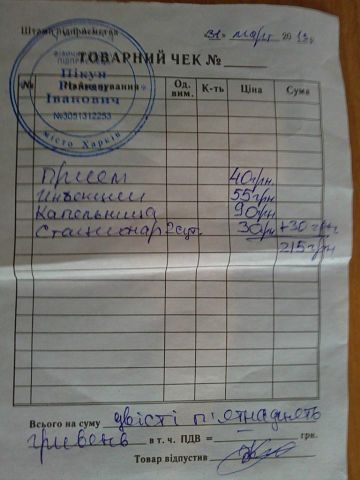 Штамп підприємства
31 март 2013р.
ТОВАРНИЙ ЧЕК №
Пікун
Іванович
№3051312253
місто Харків
№ Найменування Од. вим. К-ть Ціна Сума
Прием 40грн
Инъекции 55грн
Капельница 90грн
Стационар 2сут. 30грн +30грн
215грн
Всього на суму двісті п'ятнадцять
гривень в т. ч. ПДВ = грн.
Товар відпустив